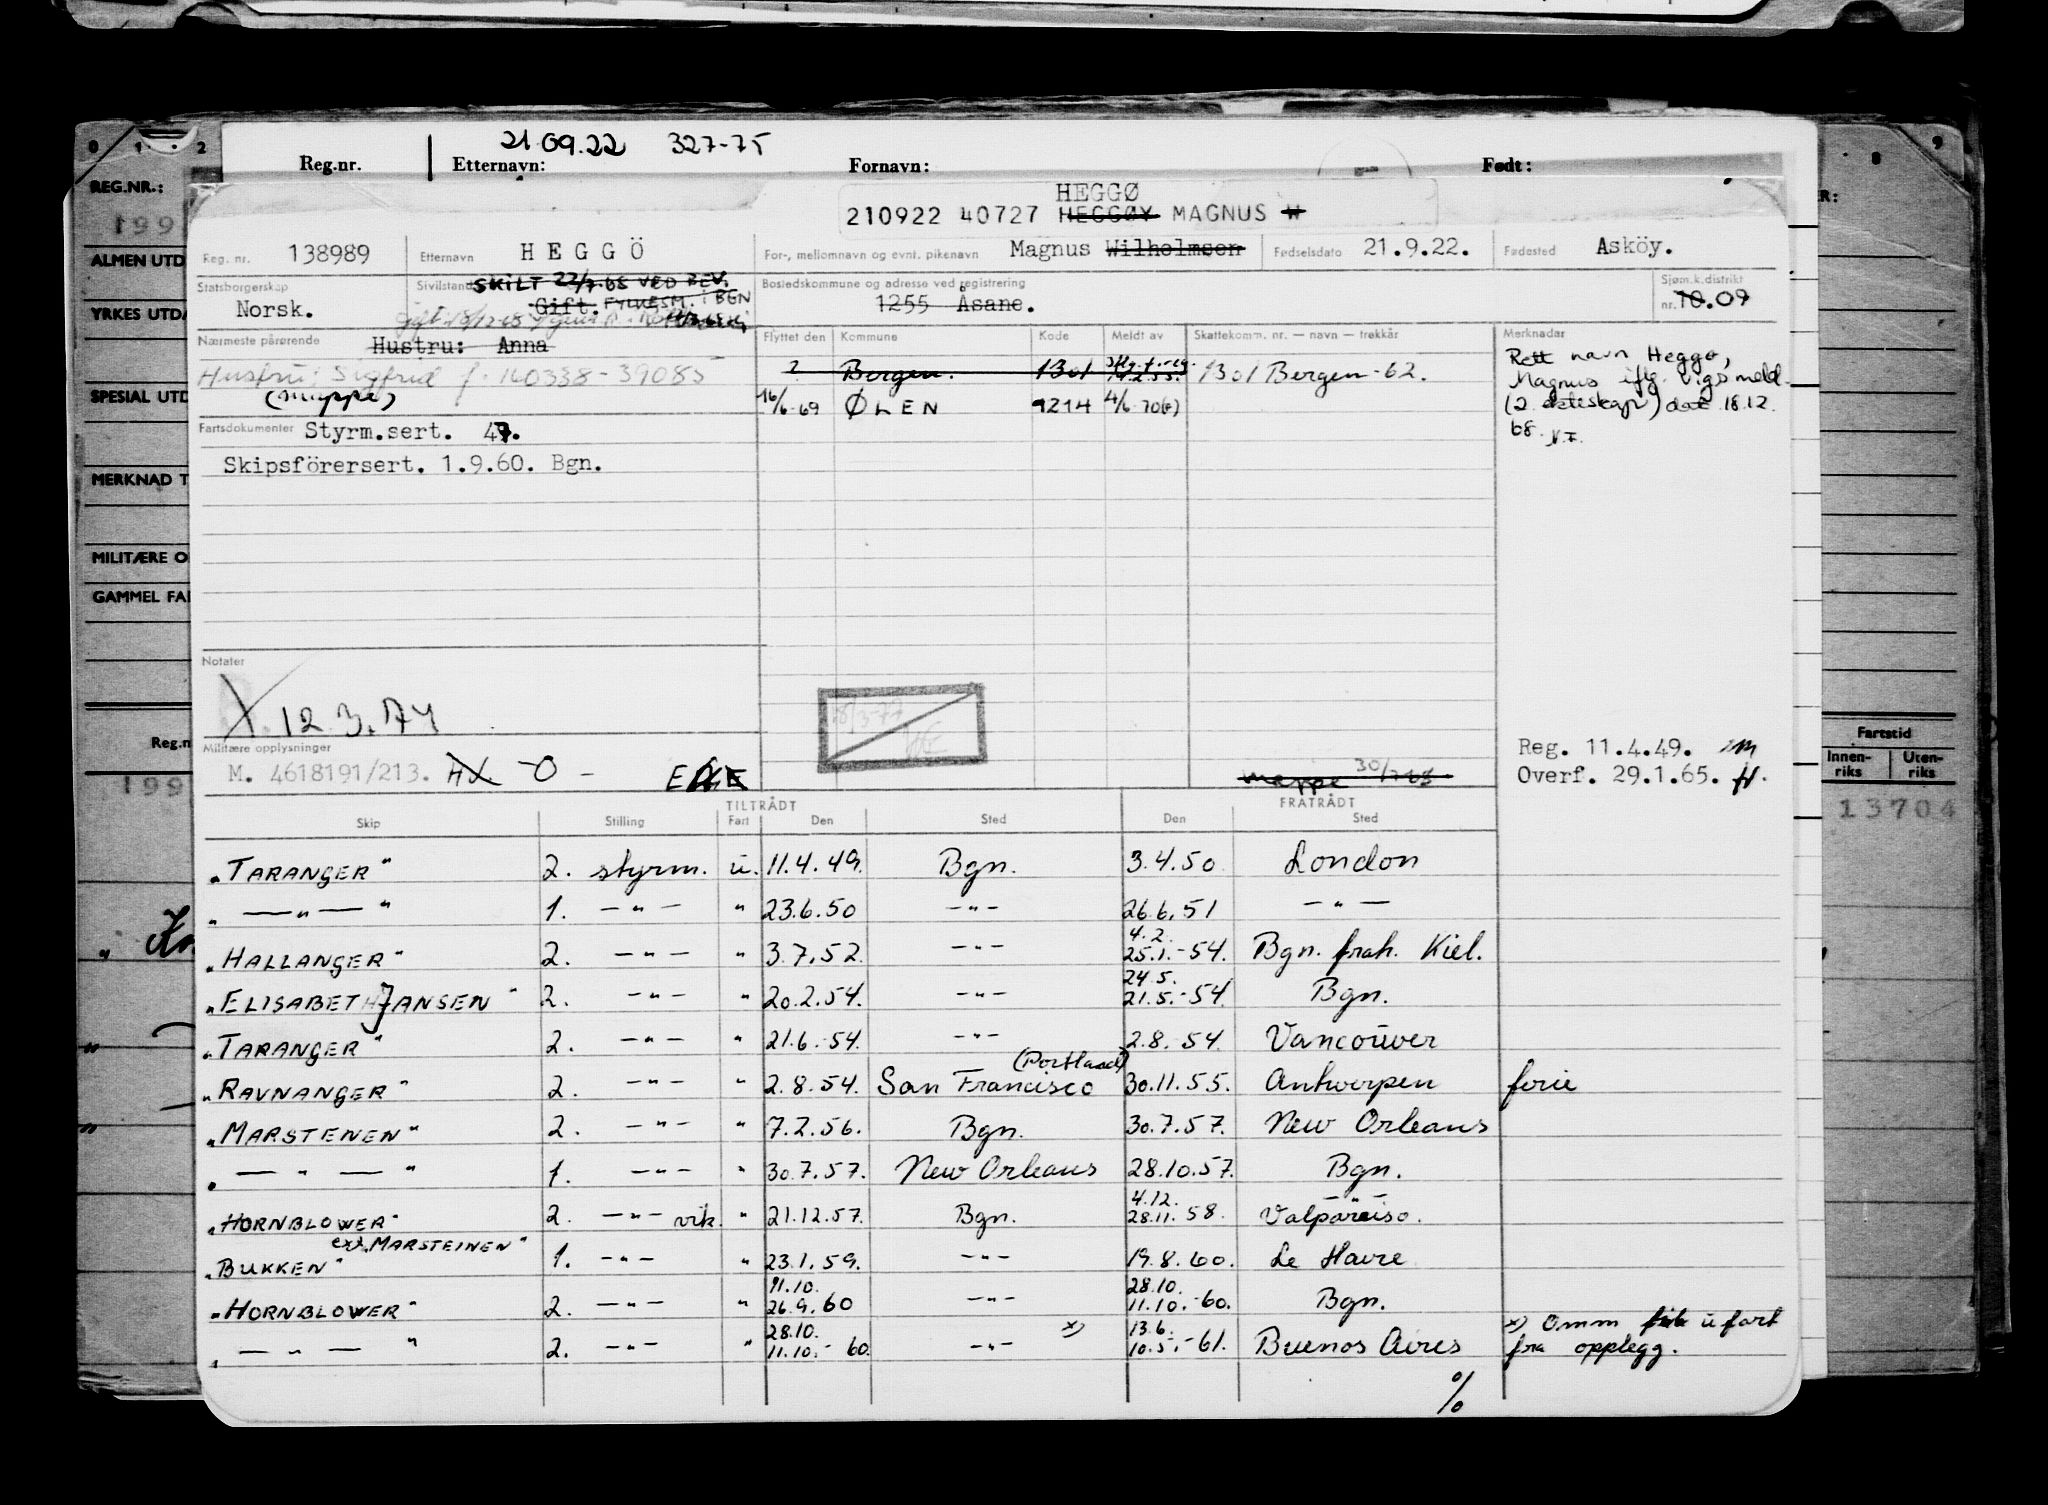 21.09.22 327-75
Reg.nr. Etternavn: Fornavn: Født:
HEGGØ
210922 40727 HEGGØY MAGNUS W
Reg. nr. 138989 Etternavn HEGGÖ For-, mellomnavn og evnt. pikenavn Magnus Wilhelmsen Fødselsdato 21.9.22. Fødested Asköy.
Statsborgerskap Norsk. Sivilstand SKILT 22/7.68 VED BEV. Gift. FYLKESM. i BGN Bostedskommune og adresse ved registrering 1255 Åsane. Sjøm.k.distrikt nr. 10.09
Nærmeste pårørende Hustru: Anna Flyttet den Kommune Kode Meldt av Skattekomm. nr. — navn — trekkår Merknader
Hustru: Sigfrid f. 140338-39085
(mappe)
? Bergen. 1301 1301 Bergen-62.
16/6-69 ØLEN 1214 4/6-70
Rett navn Heggø,
Magnus iflg. vigsmeld.
(2. ekteskap) dat 18.12.
68.
Fartsdokumenter Styrm.sert. 47.
Skipsförersert. 1.9.60. Bgn.
Notater
X.12.3.74
Militære opplysninger
M. 4618191/213. -O-
mappe 30/7-68
Reg. 11.4.49.
Overf. 29.1.65.
TILTRÅDT FRATRÅDT
Skip Stilling Fart Den Sted Den Sted
"TARANGER" 2. styrm. u. 11.4.49. Bgn. 3.4.50 London
" — " — " 1. — " — " 23.6.50 - " - 26.6.51 — " —
"HALLANGER" 2. — " — " 3.7.52. - " - 4.2. 25.1.-54. Bgn. frah. Kiel.
"ELISABETH JANSEN" 2. — " — " 20.2.54. - " - 24.5. 21.5.-54. Bgn.
"TARANGER" 2. — " — " 21.6.-54. - " - 2.8.-54. Vancouver
"RAVNANGER" 2. — " — " 2.8.54. San Francisco (Portland) 30.11.55. Antwerpen ferie
"MARSTENEN" 2. — " — " 7.2.56. Bgn. 30.7.57. New Orleans
" — " — " 1. — " — " 30.7.57. New Orleans 28.10.57. Bgn.
"HORNBLOWER" 2. — " — vik. " 21.12.57. Bgn. 4.12. 28.11.58. Valparaiso.
"BUKKEN" ex. "MARSTEINEN" 1. — " — " 23.1.59. - " - 19.8.60. Le Havre
"HORNBLOWER" 2. — " — " 11.10. 26.9.60 - " - 28.10. 11.10.-60. Bgn.
" — " — " 2. — " — " 28.10. 11.10.-60. - " - x) 13.6. 10.5.-61. Buenos Aires
x) Omm u fart
fra opplegg.
%
0 1 2
REG.NR.:
199
ALMEN UTD
YRKES UTD
SPESIAL UTD
MERKNAD T
MILITÆRE O
GAMMEL FA
Reg.n
199
8 9
R:
Fartstid
Innen-riks Uten-riks
13704